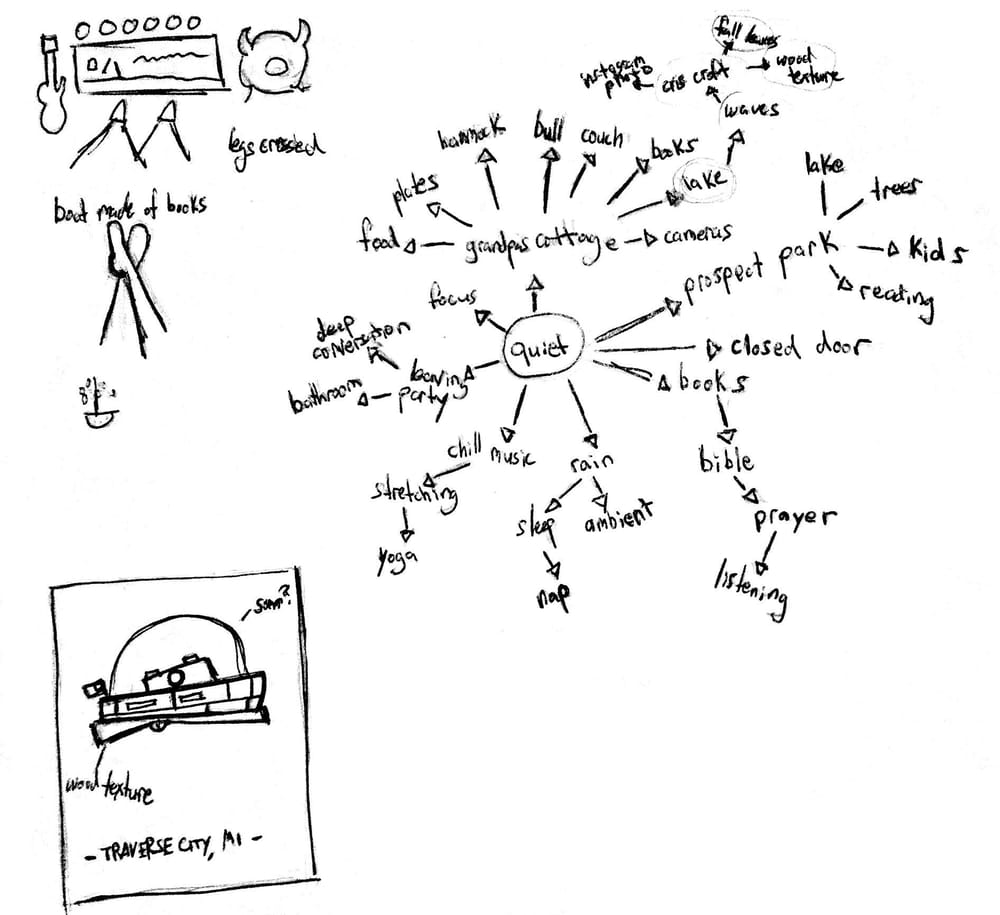 legs crossed
boat made of books
fall leaves
instagram
photo
cris craft
wood
texture
waves
hammock
bull
couch
books
lake
plates
food
grandpas cottage
cameras
lake
trees
prospect park
kids
reading
focus
deep
conversation
quiet
closed door
leaving
party
bathroom
books
chill music
stretching
yoga
rain
sleep
ambient
nap
bible
prayer
listening
wood texture
- TRAVERSE CITY, MI -